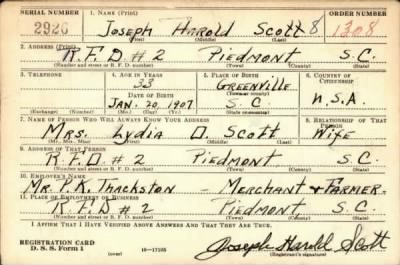 SERIAL NUMBER 1. NAME (Print) ORDER NUMBER
2926 Joseph Harold Scott 8 1308
(First) (Middle) (Last)
2. ADDRESS (Print)
R.F.D #2 Piedmont S.C.
(Number and street or R. F. D. number) (Town) (County) (State)
3. TELEPHONE 4. AGE IN YEARS 5. PLACE OF BIRTH 6. COUNTRY OF CITIZENSHIP
33 Greenville
DATE OF BIRTH (Town or county)
Jan. 20, 1907 S C U.S.A.
(Exchange) (Number) (Mo.) (Day) (Yr.) (State or country)
7. NAME OF PERSON WHO WILL ALWAYS KNOW YOUR ADDRESS 8. RELATIONSHIP OF THAT PERSON
Mrs. Lydia O. Scott Wife
(Mr., Mrs., Miss) (First) (Middle) (Last)
9. ADDRESS OF THAT PERSON
R.F.D. #2 Piedmont S.C.
(Number and street or R. F. D. number) (Town) (County) (State)
10. EMPLOYER'S NAME
Mr. P.K. Thackston - Merchant & Farmer
11. PLACE OF EMPLOYMENT OR BUSINESS
R.F.D #2 Piedmont, S.C.
(Number and street or R. F. D. number) (Town) (County) (State)
I AFFIRM THAT I HAVE VERIFIED ABOVE ANSWERS AND THAT THEY ARE TRUE.
REGISTRATION CARD
D. S. S. Form 1 (over) 16—17105 Joseph Harold Scott
(Registrant's signature)